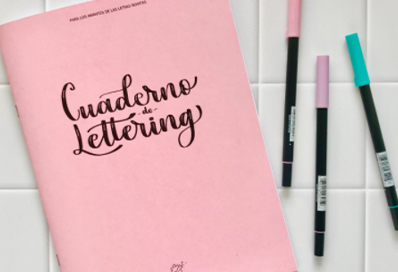 PARA LOS AMANTES DE LAS LETRAS BONITAS
Cuaderno
- de -
Lettering